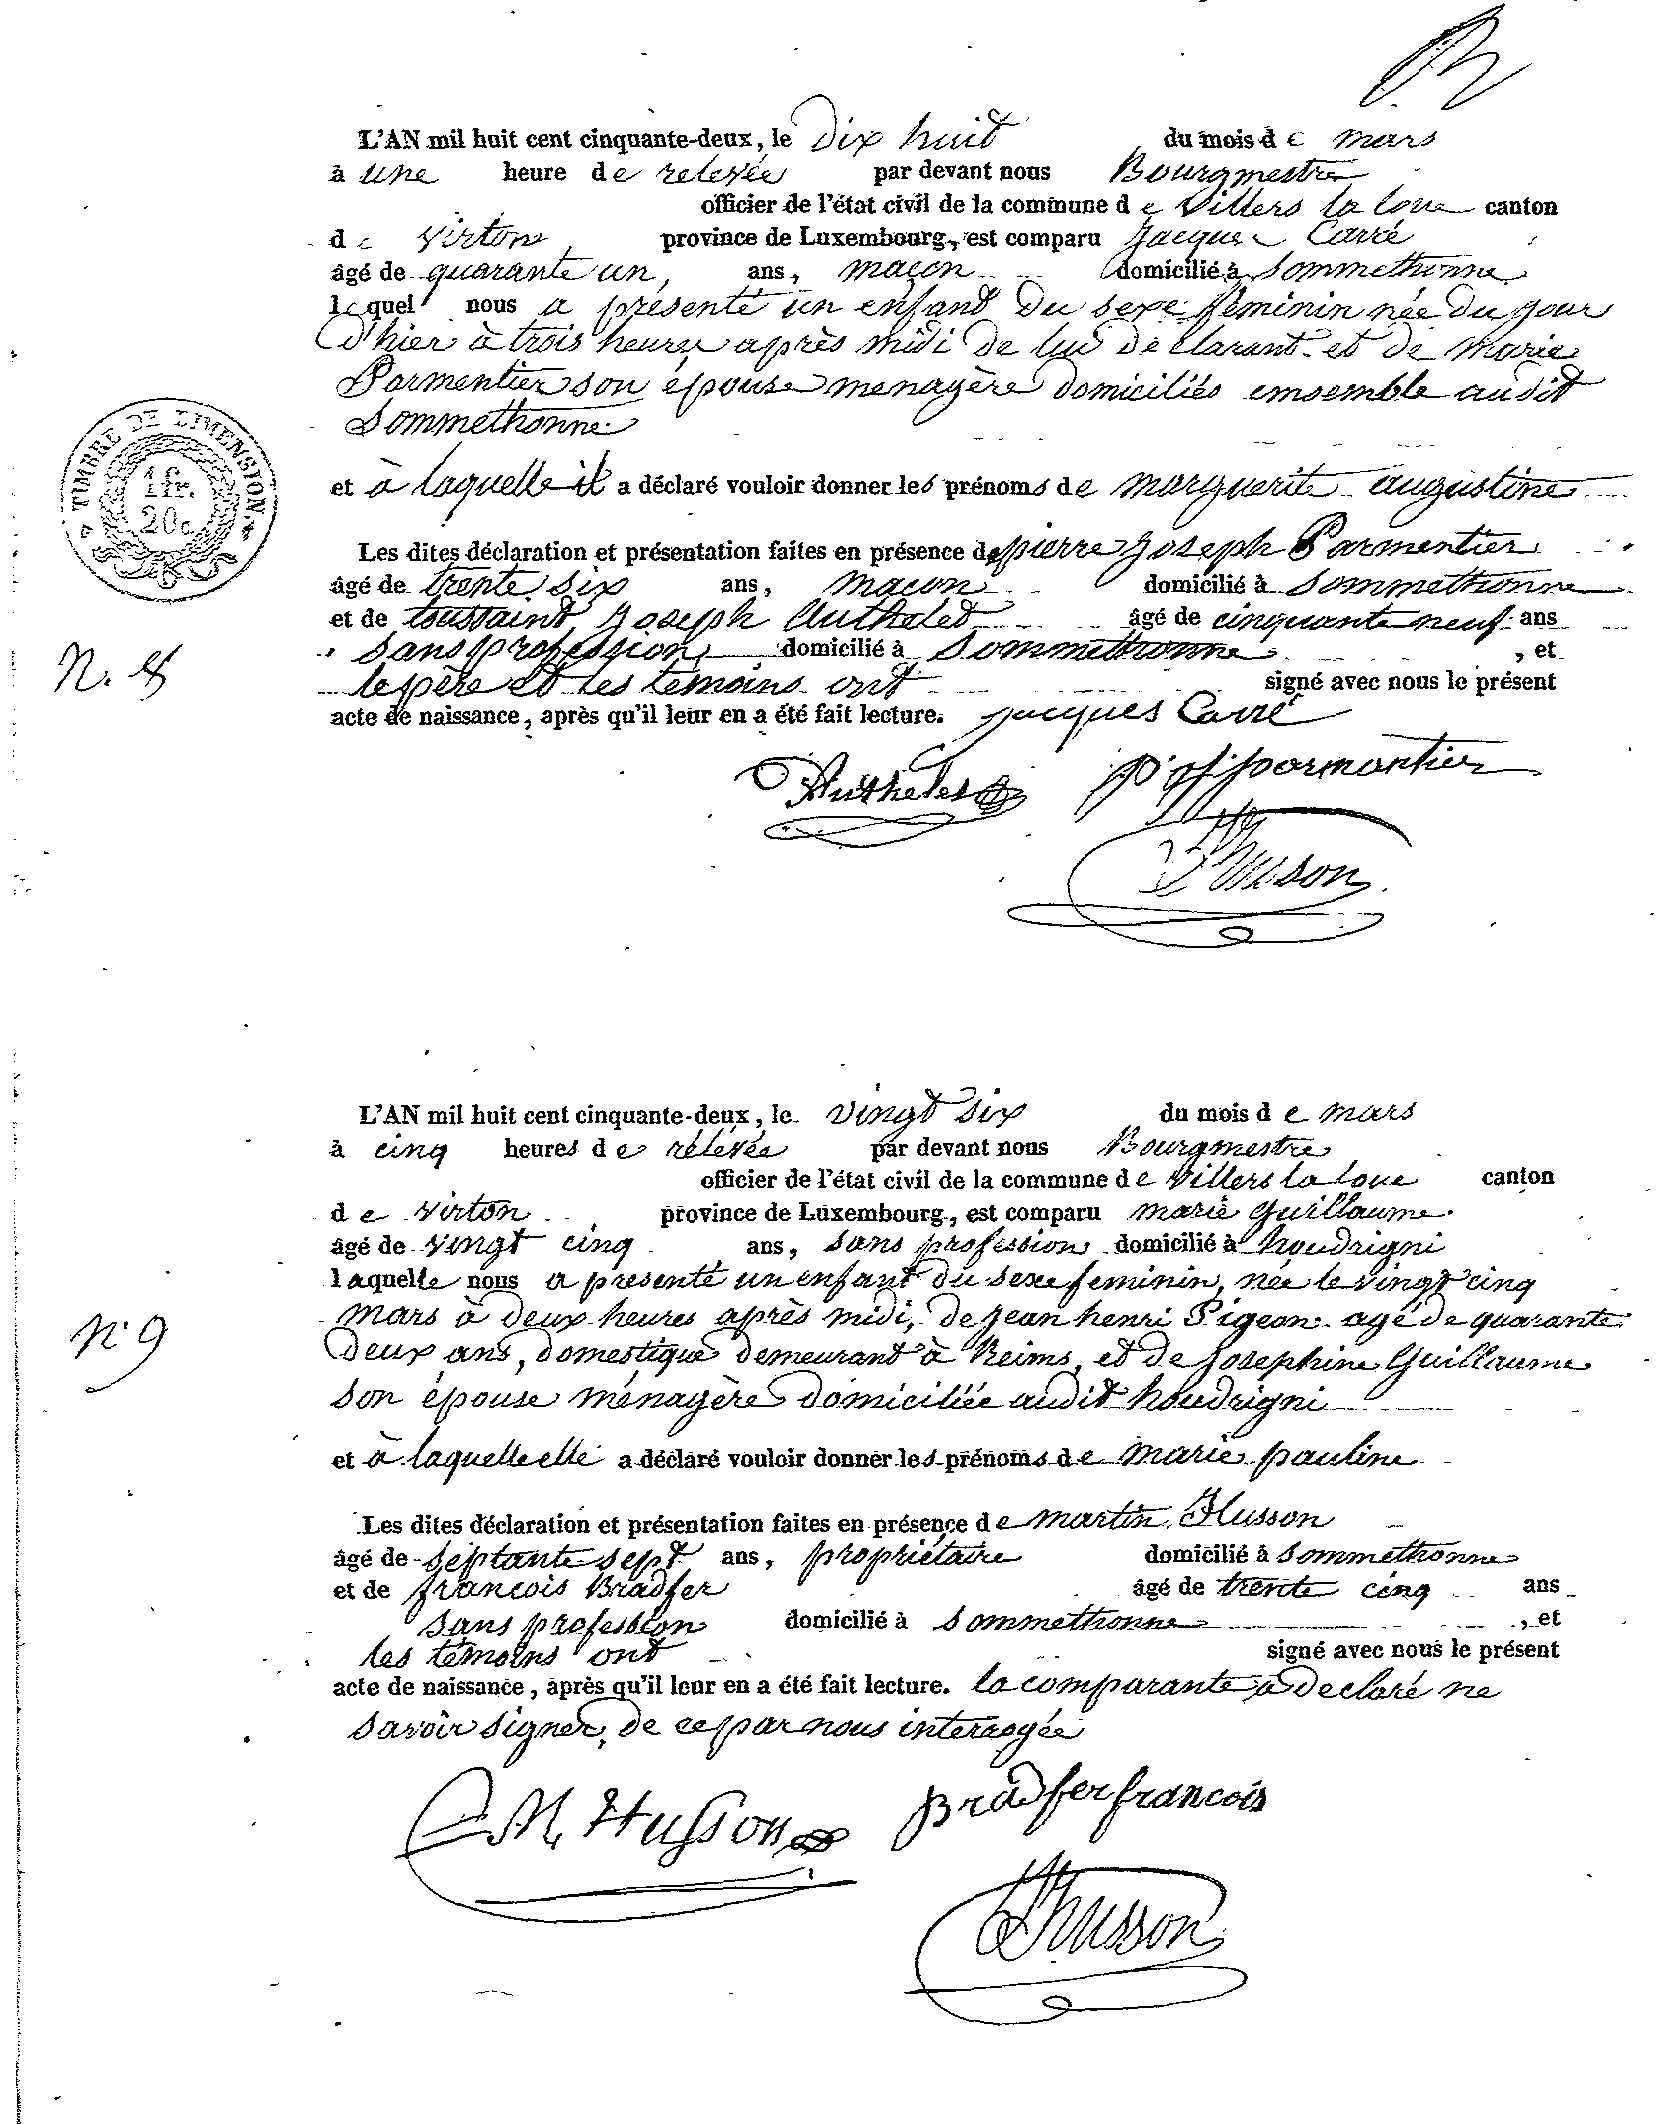 L'AN mil huit cent cinquante-deux, le Dix huit du mois de mars
à une heure de relevée par devant nous Bourgmestre
officier de l'état civil de la commune de Villers la loue canton
de virton, province de Luxembourg, est comparu Jacques Carré
âgé de quarante un, ans, maçon domicilié à Sommethonne
lequel nous a présenté un enfant du sexe féminin née du jour
D'hier à trois heures après midi de lui déclarant et de marie
Parmentier son épouse menagère domiciliés emsemble audit
Sommethonne.
TIMBRE DE DIMENSION.
1 fr.
20 c.
et à laquelle il a déclaré vouloir donner les prénoms de marguerite augustine
Les dites déclaration et présentation faites en présence de pierre Joseph Parmentier
âgé de trente six ans, maçon domicilié à Sommethonne
et de toussaint Joseph Authelet âgé de cinquante neuf ans
N. 8
sans profession, domicilié à Sommethonne, et
le père et les témoins ont signé avec nous le présent
acte de naissance, après qu'il leur en a été fait lecture. Jacques Carré
Authelet P J parmentier
Husson
L'AN mil huit cent cinquante-deux, le vingt six du mois de mars
à cinq heures de relevée par devant nous Bourgmestre
officier de l'état civil de la commune de Villers la loue canton
de virton, province de Luxembourg, est comparu marie Guillaume
âgé de vingt cinq ans, sans profession domicilié à houdrigni
laquelle nous a presenté un enfant du sexe feminin, née le vingt cinq
mars à deux heures après midi, de Jean henri Pigeon agé de quarante
N° 9
Deux ans, domestique demeurant à Reims, et de Josephine Guillaume
son épouse ménagère domiciliée audit houdrigni
et à laquelle elle a déclaré vouloir donner les prénoms de marie pauline
Les dites déclaration et présentation faites en présence de martin Husson
âgé de septante sept ans, propriétaire domicilié à Sommethonne
et de francois Bradfer âgé de trente cinq ans
sans profession domicilié à Sommethonne, et
les témoins ont signé avec nous le présent
acte de naissance, après qu'il leur en a été fait lecture. la comparante a declaré ne
savoir signer, de ce par nous interrogée
M. Husson Bradfer francois
Husson